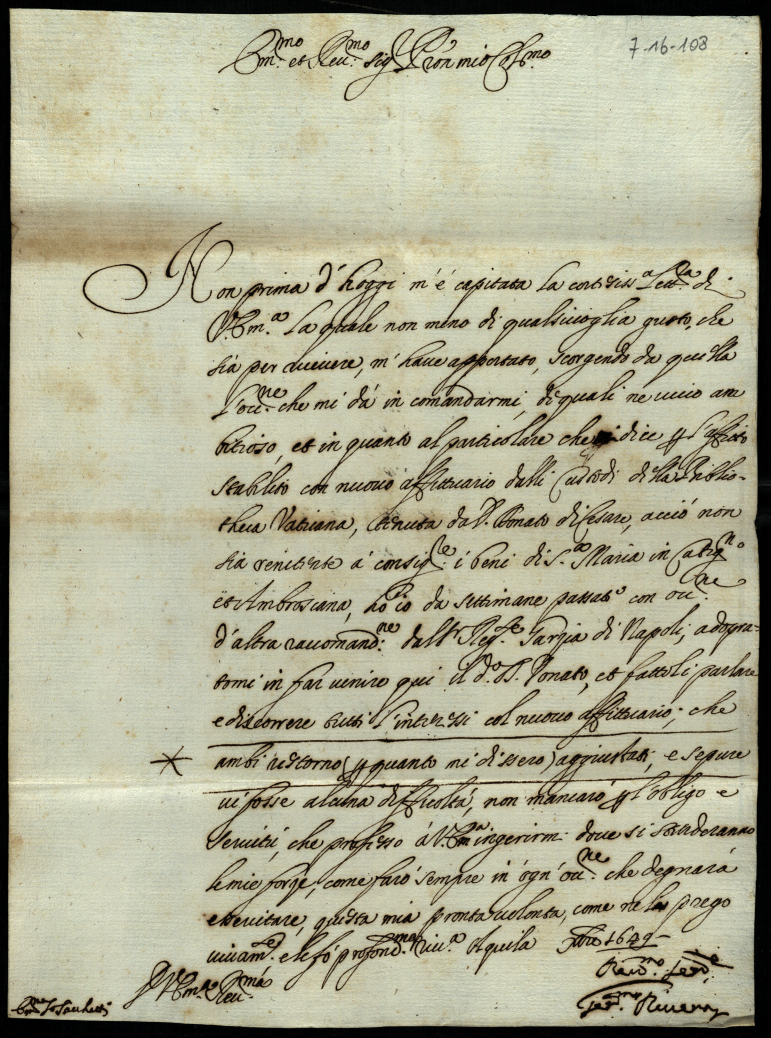 7-16-103
Em.mo et Reu.mo Sig.r Pron mio Col.mo
Non prima d'hoggi m'è capitata la cortesiss.a Lett.ra di
V. Em.a la quale non meno di qualsiuoglia gusto, che
sia per riceuere, m'haue apportato, scorgendo da quella
l'occ.ne che mi dà in comandarmi, di quali ne uiuo am
bitioso, et in quanto al particolare che dice p l'affitto
stabilito con nuouo affittuario dalli Custodi della Biblio-
theca Vaticana, tenuta da D. Donato di Cesare, acciò non
sia renitente à consig.re i beni di S.ta Maria in
et Ambrosciana, hò io da settimane passate con occ.ne
d'altra raccomand.ne dall' Reg.te Tarsia di Napoli, adopra-
tomi in far uenire qui il d.o D. Donato, et fattoli parlare
e discorrere tutti l'interessi col nuouo affittuario; che
ambi restorno (p quanto mi dissero) aggiustati, e sepure
ui fosse alcuna difficoltà, non mancarò p l'obligo e
seruitù, che professo à V. Em.a ingerirmi doue si stenderanno
le mie forze, come farò sempre in ogn'occ.ne che degnarà
esercitare, questa mia pronta uolontà, come ne la prego
uiuam.te e le fò profond.ma riu.a Aquila 1649
D V. Em.a Reu.ma
Em.mo Sacchetti
Ser.re
Riuera